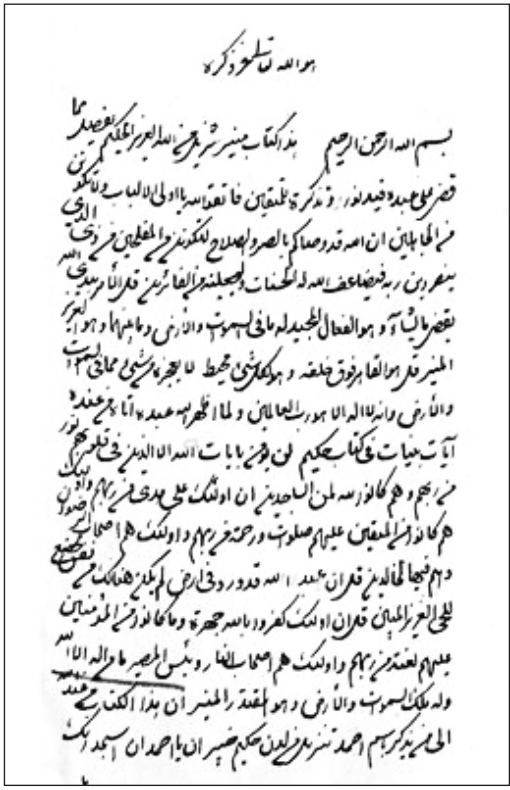 هو الله تعالى ذكره
بسم الله الرحمن الرحيم هذا كتاب منير شريف من الله العزيز الحكيم تفصيل مما
قص على عبده فيه نور و تذكرة للمتقين فاتقوا الله يا اولى الالباب ولا تكونن
من الجاهلين ان الله قد وصاكم بالصبر والصلاح لتكونن من المفلحين من ذى الذى
ينصر دين ربه فيضاعف الله له الحسنات و من الفائزين قل الامر بيدى الله
يقضى ما يشآء و هو الفعال المجيد له ما فى السموات والأرض وما بينهما وهو العزيز
المنير قل هو القاهر فوق خلقه و هو بكل شئ محيط لا يعجزه من شئ مما فى السموات
والأرض وانه لا اله الا هو رب العالمين و لما اظهر الله عبده اتاه من عنده
آيات بينات فى كتاب حكيم لن يؤمن بايات الله الا الذين فى قلوبهم نور
من ربهم وهم كانوا لله لمن الساجدين ان اولئك على هدى من ربهم واولئك
هم كانوا من المتقين عليهم صلوات ورحمة من ربهم و اولئك هم اصحاب الرضوان
وهم فيها لخالدين قل ان عبد الله قد ورد فى ارض لم يكن هنالك من
للحى العزيز المبين قل ان اولئك كفروا بالله جهرة وما كانوا من المؤمنين
عليهم لعنة من ربهم واولئك هم اصحاب النار وبئس المصير ما من اله الا الله
وله ملك السموات والأرض وهو المقتدر المنير ان هذا الكتاب من عند الله
الى من يذكر باسم احمد تنزيل من لدن حكيم خبير ان يا احمد ان اسجد لربك